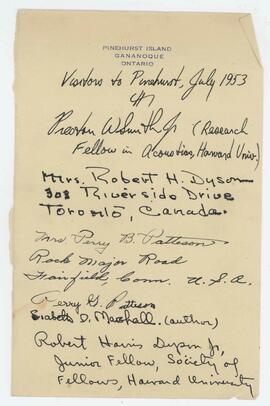 PINEHURST ISLAND
GANANOQUE
ONTARIO
Visitors to Pinehurst, July 1953
Preston W Smith Jr (Research
Fellow in Acoustics, Harvard Univ.)
Mrs. Robert H. Dyson
308 Riverside Drive
Toronto, Canada.
Mrs. Perry B. Patteson
Rock Major Road
Fairfield, Conn. U.S.A.
Perry G. Patteson
D. Marshall. (author)
Robert Harris Dyson Jr,
Junior Fellow, Society of
Fellows, Harvard University